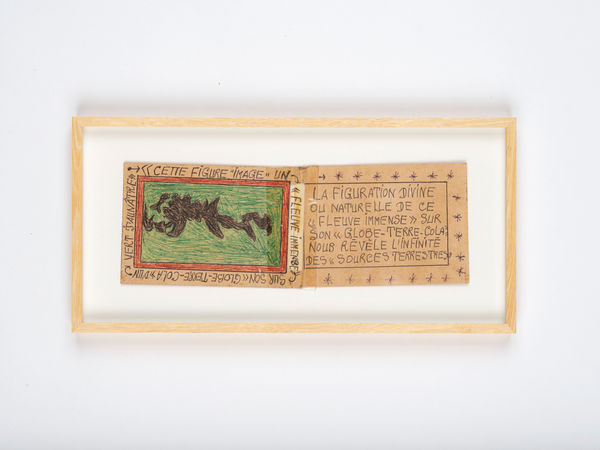 « CETTE FIGURE "IMAGE" UN
« FLEUVE IMMENSE
SUR SON « GLOBE-TERRE-COLA » D'UN
VERT JAUNÂTRE »
LA FIGURATION DIVINE
OU NATURELLE DE CE
« FLEUVE IMMENSE » SUR
SON « GLOBE-TERRE-COLA
NOUS RÊVÈLE L'INFINITÉ
DES « SOURCES TERRESTRES